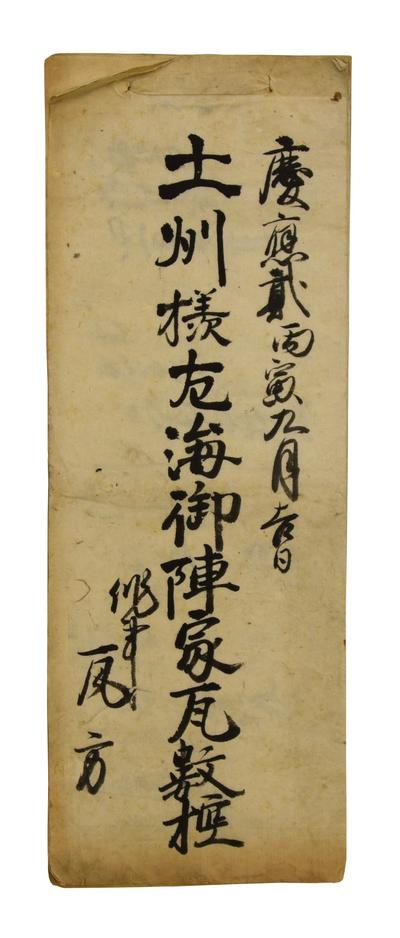 慶應貳丙寅九月吉日
土州様左海御陣家瓦数控
瓦方